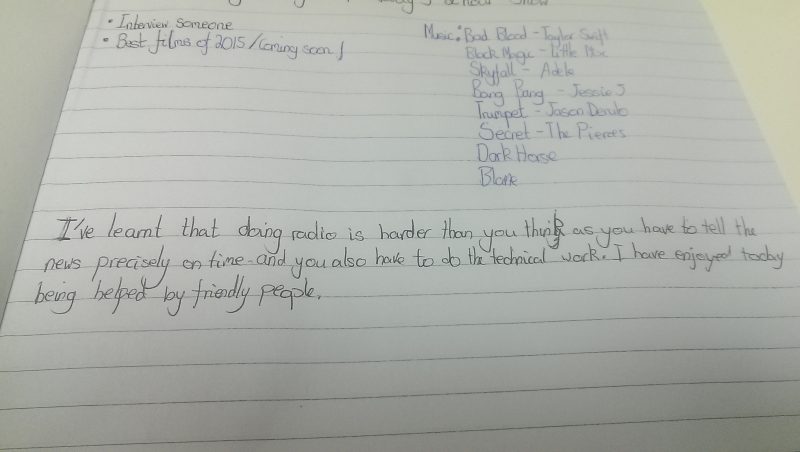 Show
• Interview someone
• Best films of 2015/Coming soon!
Music: Bad Blood - Taylor Swift
Black Magic - Little Mix
Skyfall - Adele
Bang Bang - Jessie J
Trumpet - Jason Derulo
Secret - The Pierces
Dark Horse
Blame
I've learnt that doing radio is harder than you think as you have to tell the
news precisely on time and you also have to do the technical work. I have enjoyed today
being helped by friendly people.